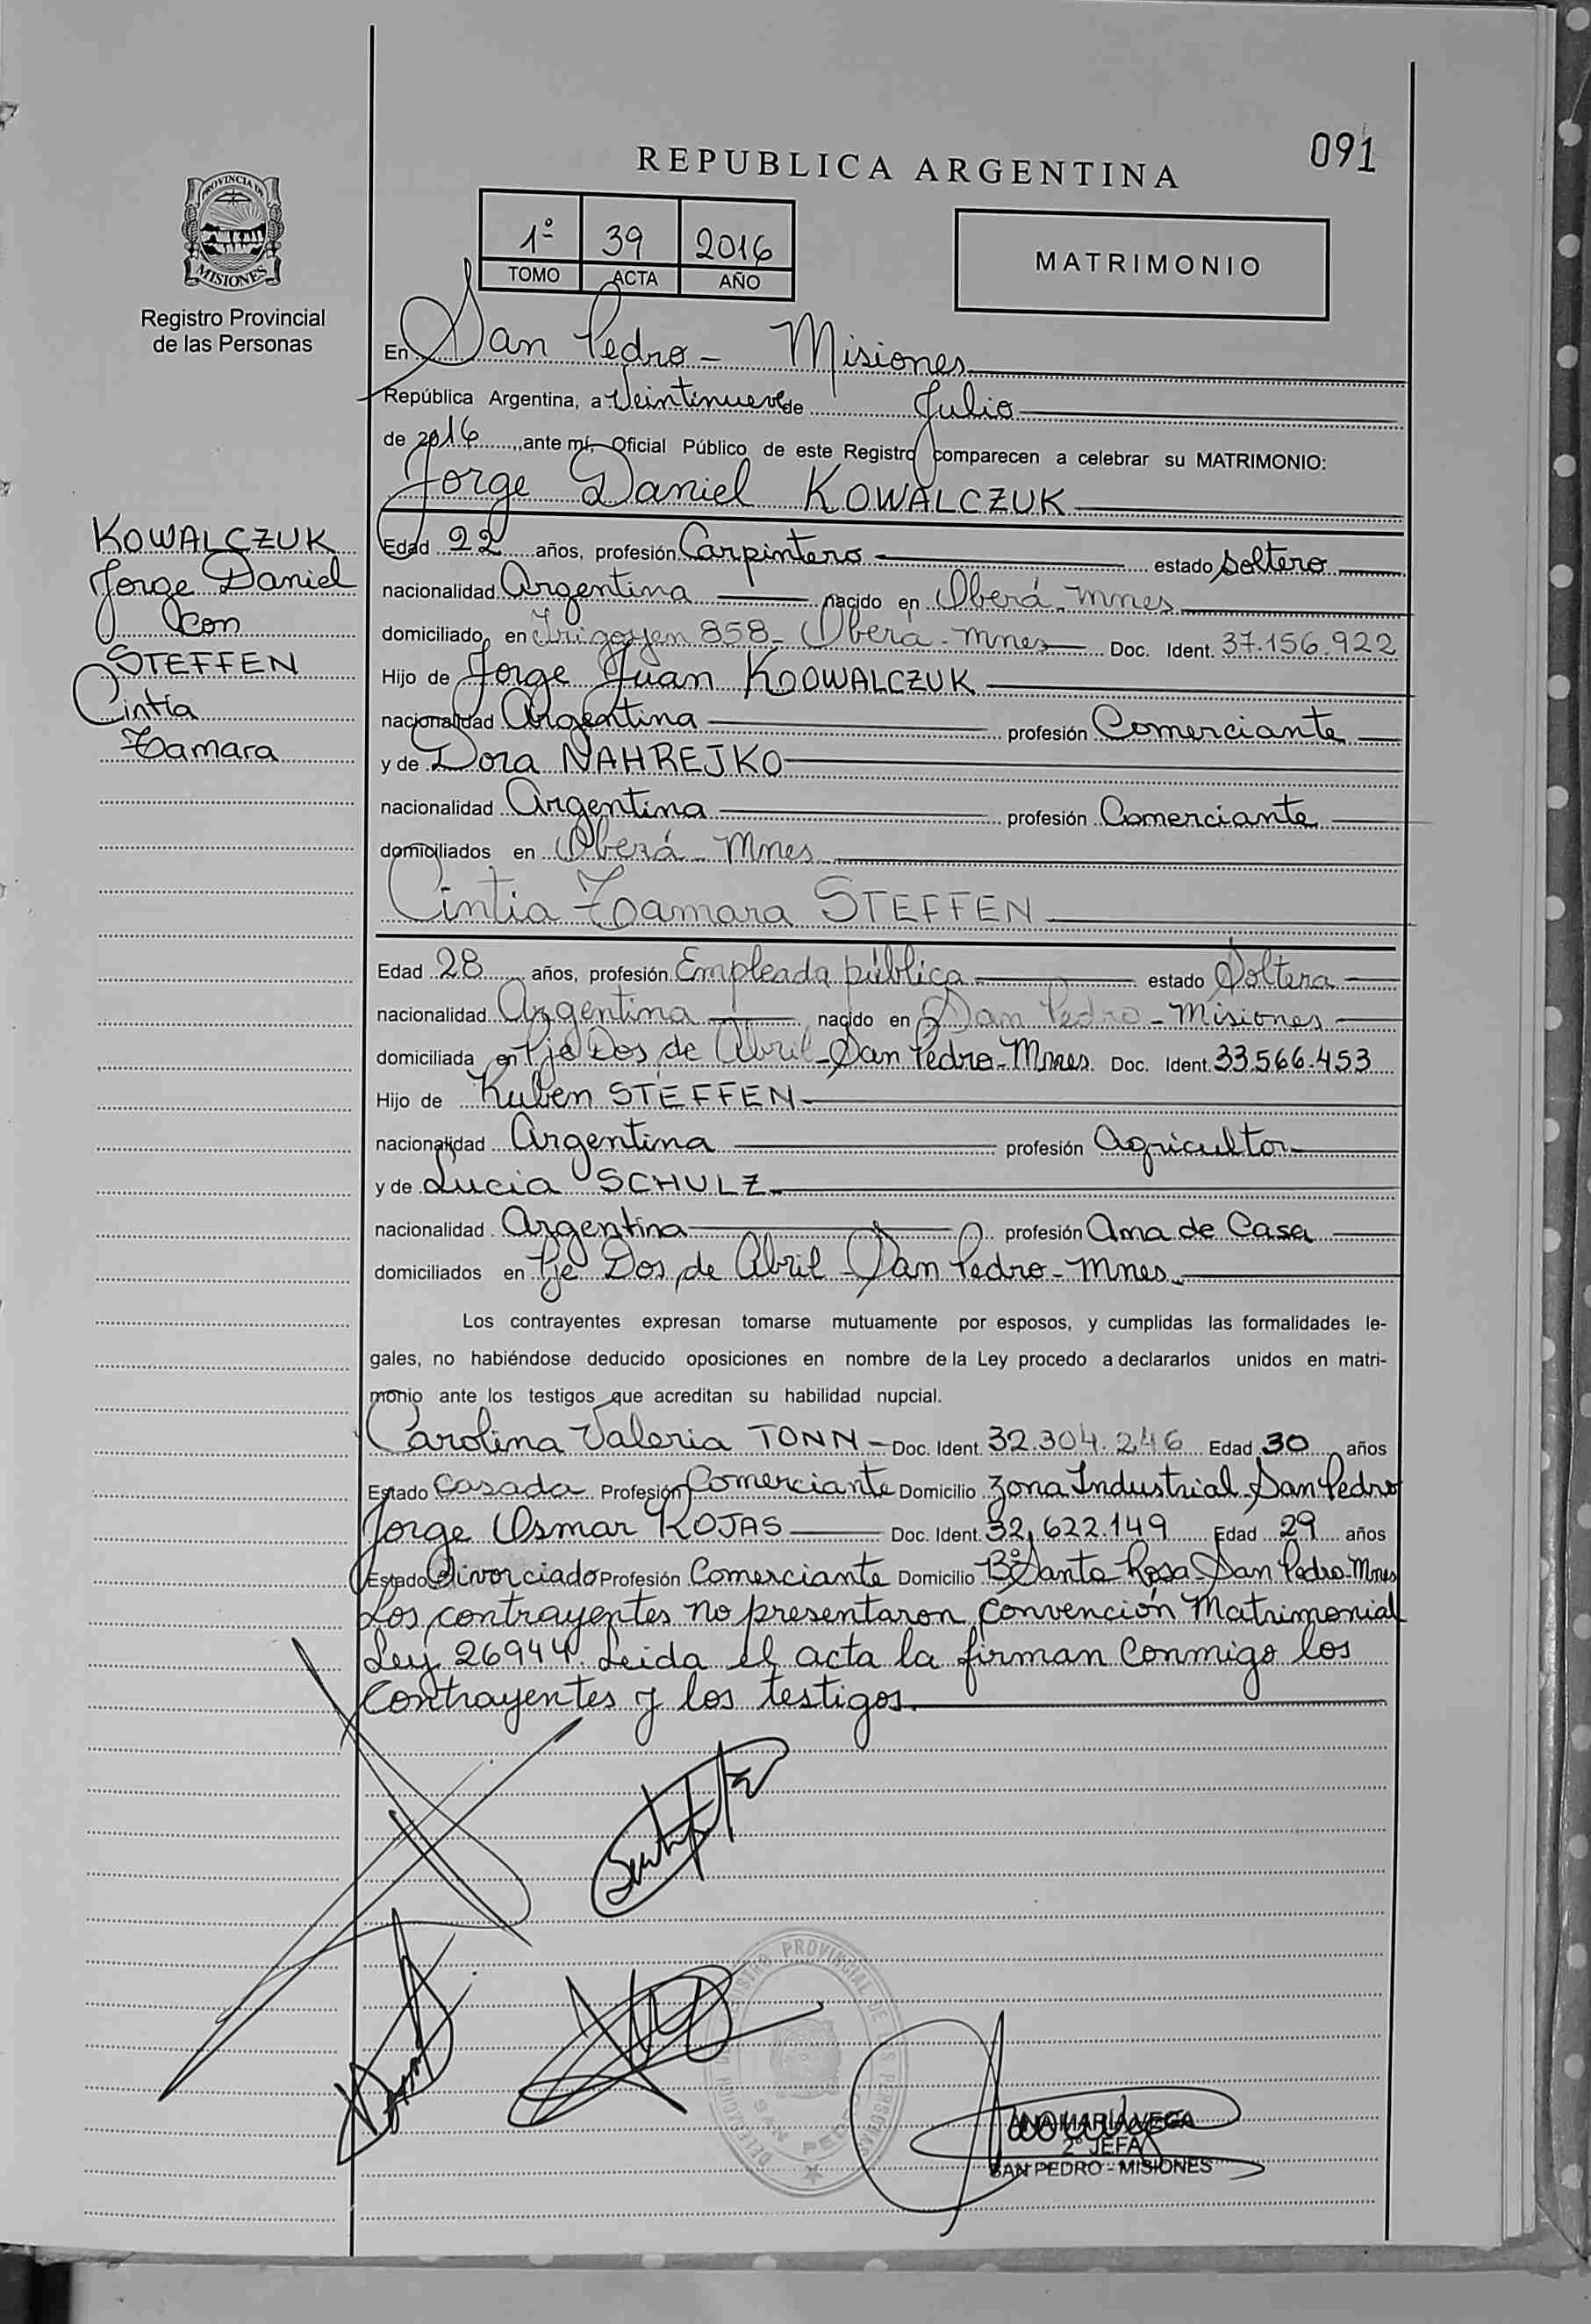 091
REPUBLICA ARGENTINA
PROVINCIA DE
MISIONES
Registro Provincial
de las Personas
1º 39 2016
TOMO ACTA AÑO
MATRIMONIO
En San Pedro - Misiones
República Argentina, a Veintinueve de Julio
de 2016, ante mí, Oficial Público de este Registro comparecen a celebrar su MATRIMONIO:
Jorge Daniel KOWALCZUK
KOWALCZUK
Jorge Daniel
Con
STEFFEN
Cintia
Tamara
Edad 22 años, profesión Carpintero estado Soltero
nacionalidad Argentina nacido en Oberá - Mnes
domiciliado en Irigoyen 858 - Oberá - Mnes Doc. Ident. 37.156.922
Hijo de Jorge Juan KOOWALCZUK
nacionalidad Argentina profesión Comerciante
y de Dora NAHREJKO
nacionalidad Argentina profesión Comerciante
domiciliados en Oberá - Mnes
Cintia Tamara STEFFEN
Edad 28 años, profesión Empleada pública estado Soltera
nacionalidad Argentina nacido en San Pedro - Misiones
domiciliada en Pje Dos de Abril - San Pedro - Mnes. Doc. Ident. 33.566.453
Hijo de Ruben STEFFEN
nacionalidad Argentina profesión Agricultor
y de Lucia SCHULZ
nacionalidad Argentina profesión Ama de Casa
domiciliados en Pje Dos de Abril San Pedro - Mnes.
Los contrayentes expresan tomarse mutuamente por esposos, y cumplidas las formalidades le-
gales, no habiéndose deducido oposiciones en nombre de la Ley procedo a declararlos unidos en matri-
monio ante los testigos que acreditan su habilidad nupcial.
Carolina Valeria TONN - Doc. Ident. 32.304.246 Edad 30 años
Estado Casada Profesión Comerciante Domicilio Zona Industrial - San Pedro
Jorge Osmar ROJAS Doc. Ident. 32,622.149 Edad 29 años
Estado Divorciado Profesión Comerciante Domicilio Bº Santa Rosa - San Pedro - Mnes
Los contrayentes no presentaron Convención Matrimonial
Ley 26944. Leida el acta la firman Conmigo los
Contrayentes y los testigos.
REGISTRO PROVINCIAL DE LAS PERSONAS
DELEGACION
SAN PEDRO
ANA MARIA VEGA
2º JEFA
SAN PEDRO - MISIONES